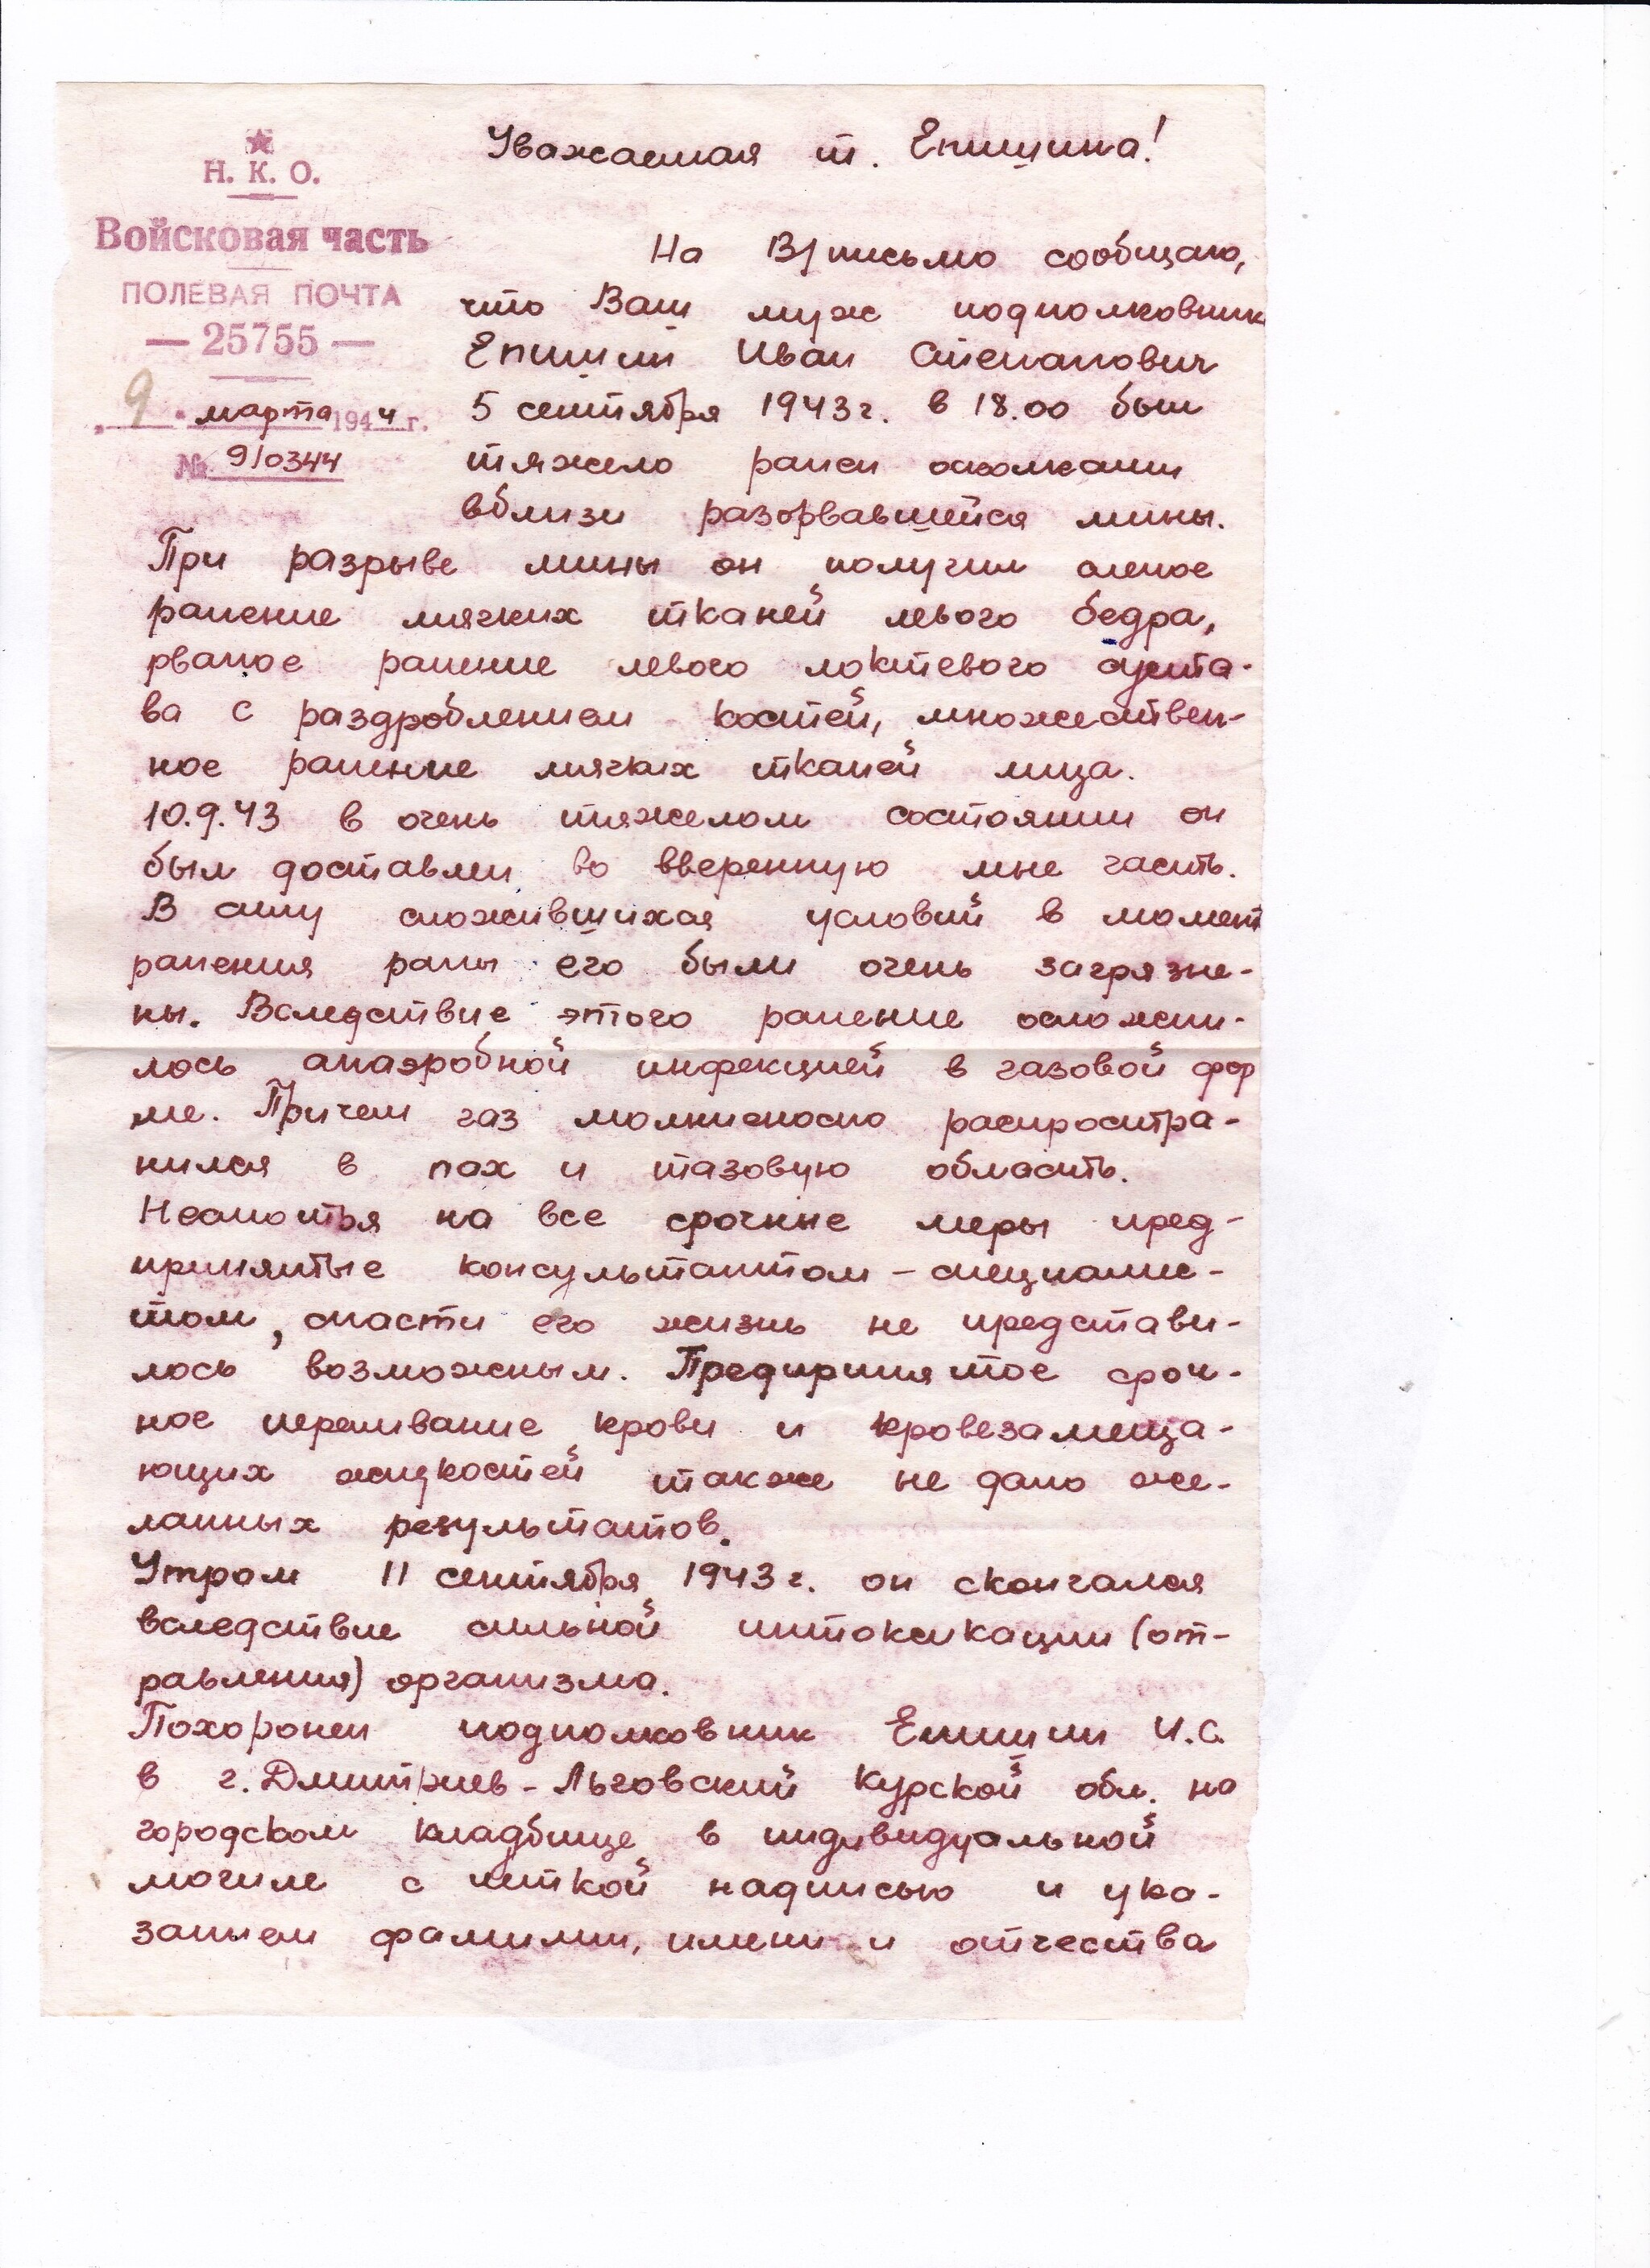 Н. К. О.
Войсковая часть
ПОЛЕВАЯ ПОЧТА
— 25755 —
„ 9 " марта 1944 г.
№ 9/0344
Уважаемая т. Епишина!
На В/письмо сообщаю,
что Ваш муж подполковник
Епишин Иван Степанович
5 сентября 1943 г. в 18.00 был
тяжело ранен осколками
вблизи разорвавшейся мины.
При разрыве мины он получил слепое
ранение мягких тканей левого бедра,
рваное ранение левого локтевого суста-
ва с раздроблением костей, множествен-
ное ранение мягких тканей лица.
10.9.43 в очень тяжелом состоянии он
был доставлен во вверенную мне часть.
В силу сложившихся условий в момент
ранения раны его были очень загрязне-
ны. Вследствие этого ранение осложни-
лось анаэробной инфекцией в газовой фор
ме. Причем газ молниеносно распростра-
нился в пах и тазовую область.
Несмотря на все срочные меры пред-
принятые консультантом - специалис-
том, спасти его жизнь не представи-
лось возможным. Предпринятое сроч-
ное переливание крови и кровезамеща-
ющих жидкостей также не дало же-
ланных результатов.
Утром 11 сентября 1943 г. он скончался
вследствие сильной интоксикации (от-
равления) организма.
Похоронен подполковник Епишин И.С.
в г. Дмитриев - Льговский Курской обл. на
городском кладбище в индивидуальной
могиле с четкой надписью и ука-
занием фамилии, имени и отчества